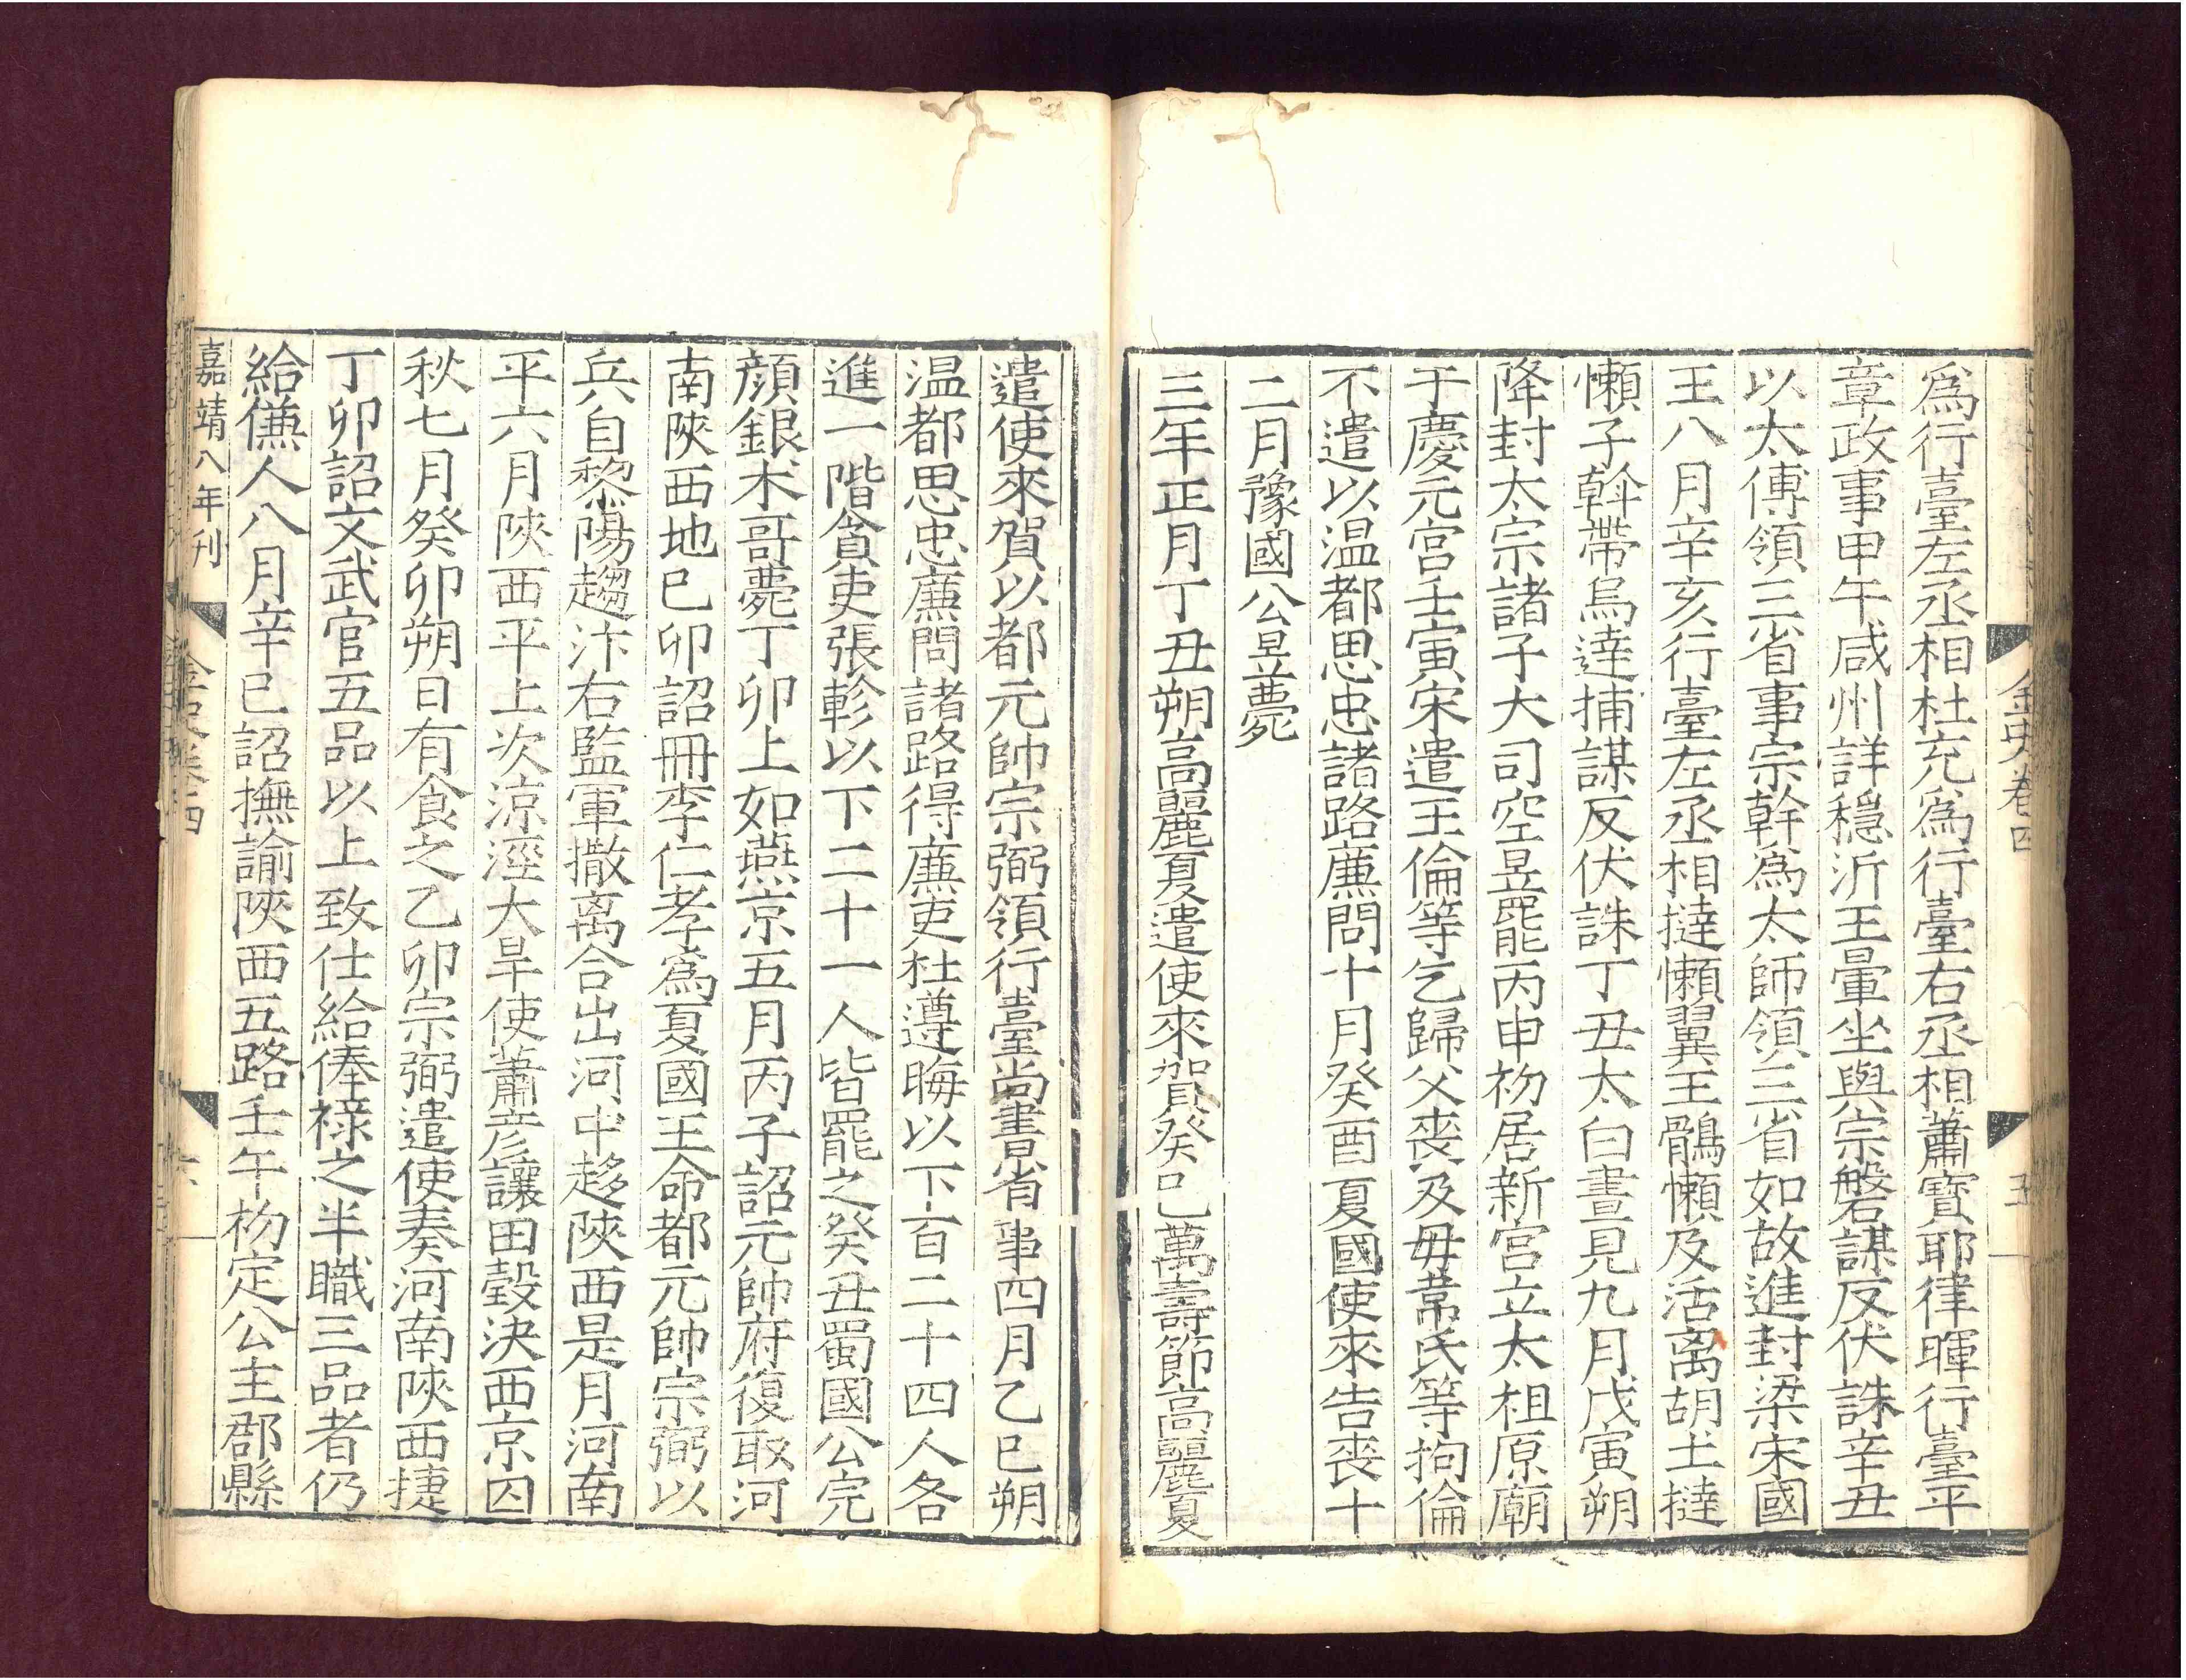 金史卷四
五
爲行臺左丞相杜充爲行臺右丞相蕭寶耶律暉行臺平
章政事甲午咸州詳穩沂王暈坐與宗磐謀反伏誅辛丑
以太傅領三省事宗幹爲太師領三省如故進封梁宋國
王八月辛亥行臺左丞相撻懶翼王鶻懶及活离胡土撻
懶子斡帶烏達捕謀反伏誅丁丑太白晝見九月戊寅朔
降封太宗諸子大司空昱罷丙申初居新宫立太祖原廟
于慶元宫壬寅宋遣王倫等乞歸父丧及毋韋氏等拘倫
不遣以温都思忠諸路廉問十月癸酉夏國使來告丧十
二月豫國公昱薨
三年正月丁丑朔高麗夏遣使來賀癸巳萬壽節高麗夏
遣使來賀以都元帥宗弼領行臺尚書省事四月乙巳朔
温都思忠廉問諸路得廉吏杜遵晦以下百二十四人各
進一階貪吏張軫以下二十一人皆罷之癸丑蜀國公完
顔銀术哥薨丁卯上如燕京五月丙子詔元帥府復取河
南陝西地巳卯詔冊李仁孝爲夏國王命都元帥宗弼以
兵自黎陽趨汴右監軍撒离合出河中趍陝西是月河南
平六月陝西平上次凉陘大旱使蕭彦讓田瑴決西京囚
秋七月癸卯朔日有食之乙卯宗弼遣使奏河南陝西捷
丁卯詔文武官五品以上致仕給俸禄之半職三品者仍
給傔人八月辛巳詔撫諭陝西五路壬午初定公主郡縣
嘉靖八年刋
金史卷四
六